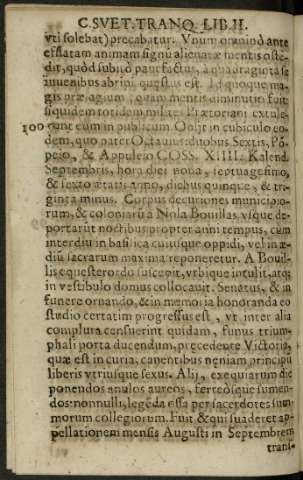 C. SVET. TRANQ. LIB. II.
vti solebat) precabatur. Vnum omninò ante
efflatam animam signũ alienatæ mentis oste-
dit, quòd subitò pauefactus, à quadraginta se
iuuenibus abripi questus est. Id quoque ma-
gis præsagium, quam mentis diminutio fuit:
siquidem totidem milites Prætoriani extule-
100 runt eum in publicum. Obijt in cubiculo eo-
dem, quo pater Octauius: duobus Sextis, Põ-
peio, & Appuleio COSS. XIIII. Kalend.
Septembris, hora diei nona, septuagesimo,
& sexto ætatis anno, diebus quinque, & tri-
ginta minus. Corpus decuriones municipio-
rum, & coloniarũ à Nola Bouillas, vsque de-
portarũt noctibus propter anni tempus, cum
interdiu in basilica cuiusque oppidi, vel in æ-
diũ sacrarum maxima reponeretur. A Bouil-
lis equester ordo suscepit, vrbique intulit, atq;
in vestibulo domus collocauit. Senatus, & in
funere ornando, & in memoria honoranda eo
studio certatim progressus est, vt inter alia
complura censuerint quidam, funus trium-
phali porta ducendum, precedente Victoria,
quæ est in curia, canentibus neniam principũ
liberis vtriusque sexus. Alij, exequiarum die
ponendos anulos aureos, ferreosque sumen-
dos: nonnulli, legẽda ossa per sacerdotes sum-
morum collegiorum. Fuit & qui suaderet ap-
pellationem mensis Augusti in Septembrem
trans-